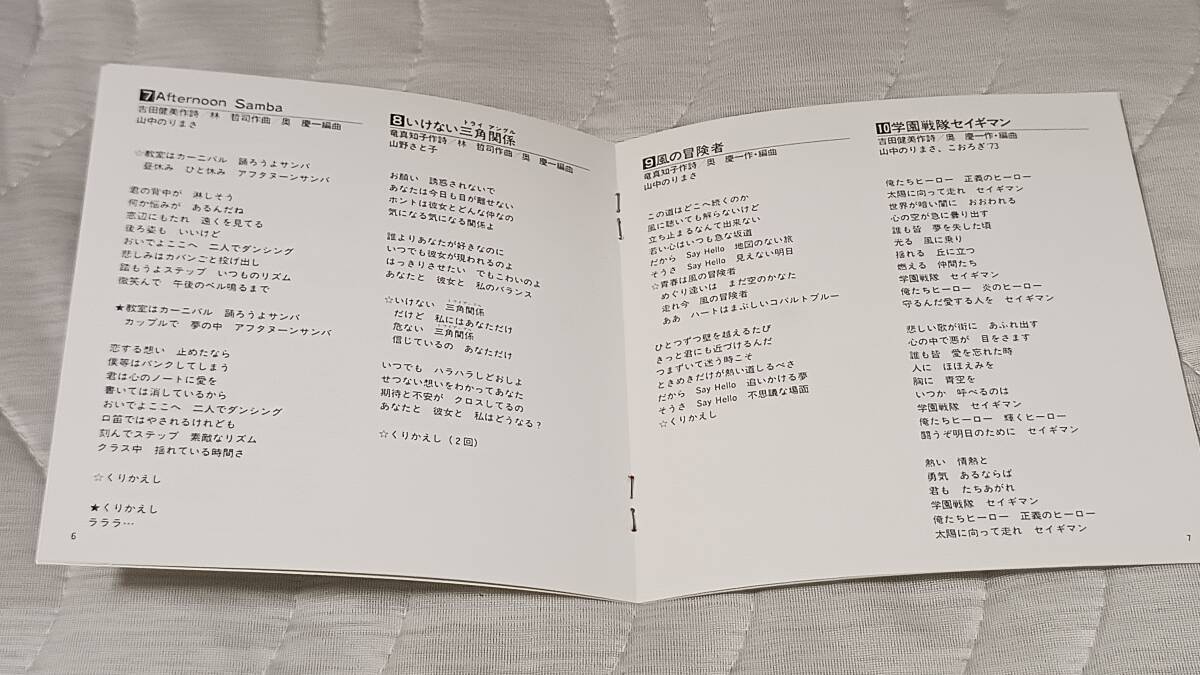 7 Afternoon Samba
吉田健美作詩/林 哲司作曲/奥 慶一編曲
山中のりまさ
☆教室はカーニバル 踊ろうよサンバ
昼休み ひと休み アフタヌーンサンバ
君の背中が 淋しそう
何か悩みが あるんだね
窓辺にもたれ 遠くを見てる
後ろ姿も いいけど
おいでよここへ 二人でダンシング
悲しみはカバンごと投げ出し
踏もうよステップ いつものリズム
微笑んで 午後のベル鳴るまで
★教室はカーニバル 踊ろうよサンバ
カップルで 夢の中 アフタヌーンサンバ
恋する想い 止めたなら
僕等はパンクしてしまう
君は心のノートに愛を
書いては消しているから
おいでよここへ 二人でダンシング
口笛ではやされるけれども
刻んでステップ 素敵なリズム
クラス中 揺れている時間さ
☆くりかえし
★くりかえし
ラララ…
6
トライ アングル
8 いけない三角関係
竜真知子作詩/林 哲司作曲/奥 慶一編曲
山野さと子
お願い 誘惑されないで
あなたは今日も目が離せない
ホントは彼女とどんな仲なの
気になる気になる関係よ
誰よりあなたが好きなのに
いつでも彼女が現われるのよ
はっきりさせたい でもこわいのよ
あなたと 彼女と 私のバランス
トライアングル
☆いけない 三角関係
だけど 私にはあなただけ
トライアングル
危ない 三角関係
信じているの あなただけ
いつでも ハラハラしどおしよ
せつない想いをわかってあなた
期待と不安が クロスしてるの
あなたと 彼女と 私はどうなる?
☆くりかえし(2回)
9 風の冒険者
竜真知子作詩/奥 慶一作・編曲
山中のりまさ
この道はどこへ続くのか
風に聴いても解らないけど
立ち止まるなんて出来ない
若い心はいつも急な坂道
だから Say Hello 地図のない旅
そうさ Say Hello 見えない明日
☆青春は風の冒険者
めぐり逢いは まだ空のかなた
走れ今 風の冒険者
ああ ハートはまぶしいコバルトブルー
ひとつずつ壁を越えるたび
きっと君にも近づけるんだ
つまずいて迷う時こそ
ときめきだけが熱い道しるべさ
だから Say Hello 追いかける夢
そうさ Say Hello 不思議な場面
☆くりかえし
10 学園戦隊セイギマン
吉田健美作詩/奥 慶一作・編曲
山中のりまさ、こおろぎ'73
俺たちヒーロー 正義のヒーロー
太陽に向って走れ セイギマン
世界が暗い闇に おおわれる
心の空が急に曇り出す
誰も皆 夢を失した頃
光る 風に乗り
揺れる 丘に立つ
燃える 仲間たち
学園戦隊 セイギマン
俺たちヒーロー 炎のヒーロー
守るんだ愛する人を セイギマン
悲しい歌が街に あふれ出す
心の中で悪が 目をさます
誰も皆 愛を忘れた時
人に ほほえみを
胸に 青空を
いつか 呼べるのは
学園戦隊 セイギマン
俺たちヒーロー 輝くヒーロー
闘うぞ明日のために セイギマン
熱い 情熱と
勇気 あるならば
君も たちあがれ
学園戦隊 セイギマン
俺たちヒーロー 正義のヒーロー
太陽に向って走れ セイギマン
7